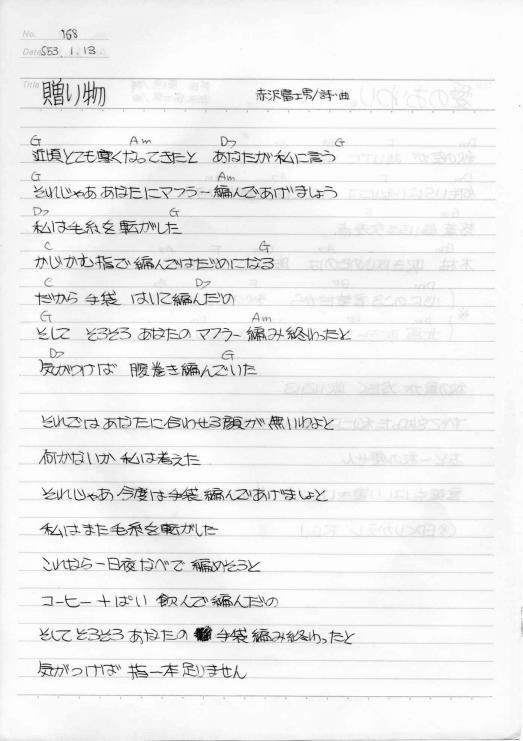 No. 168
Date S53. 1. 13
Title 贈り物
赤沢冨士男/詩・曲
G Am D7 G
近頃とても寒くなってきたと あなたが私に言う
G Am
それじゃああなたにマフラー編んであげましょう
D7 G
私は毛糸を転がした
C G
かじかむ指で編んではだめになる
C D7
だから手袋 はいて編んだの
G Am
そして そろそろあなたのマフラー編み終わったと
D7 G
気がつけば 腹巻き編んでいた
それではあなたに合わせる顔が無いわよと
何かないか私は考えた
それじゃあ今度は手袋編んであげましょと
私はまた毛糸を転がした
これなら一日夜なべで編めそうと
コーヒー十ぱい飲んで編んだの
そしてそろそろあなたの 手袋編み終わったと
気がつけば 指一本足りません